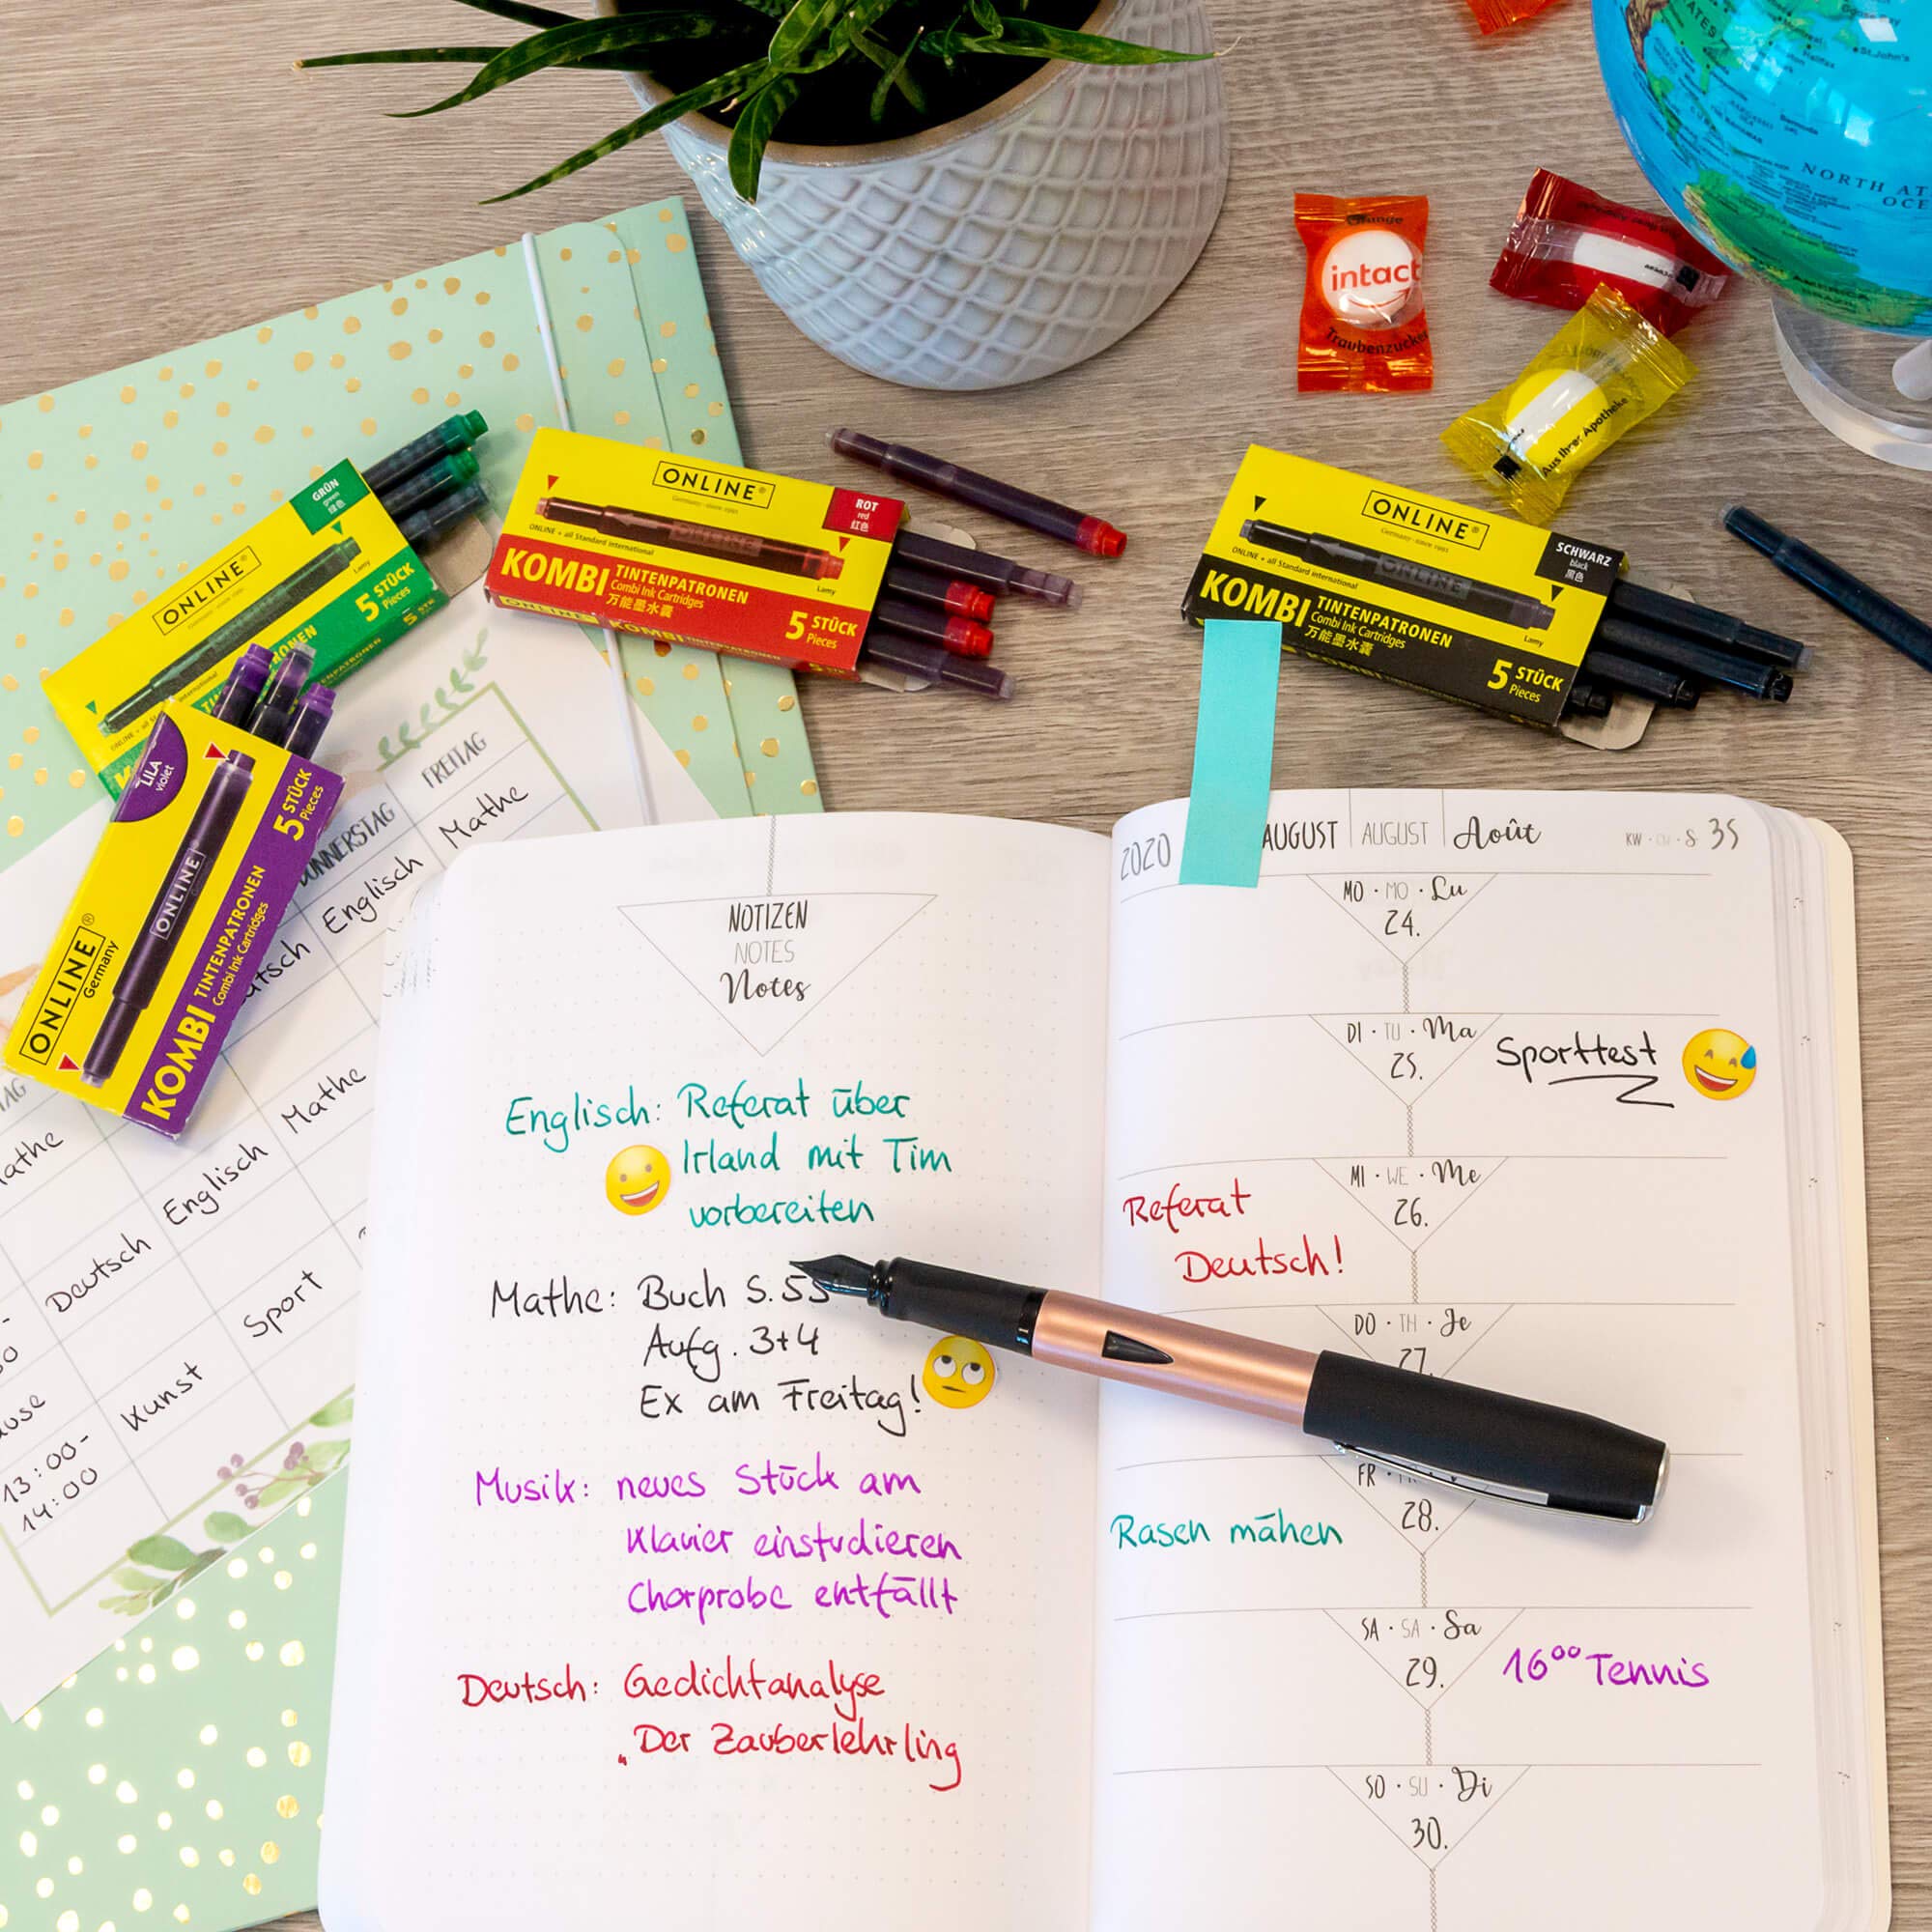 TATES
Halifax
St. John's
Bermuda
NORTH AT
OCE
Orange
intact
Traubenzucker
Aus Ihrer Apotheke
GRÜN
green
绿色
ONLINE
Lamy
5 STÜCK
Pieces
ONLINE®
Germany · since 1991
ROT
red
红色
ONLINE
ONLINE + all Standard international
Lamy
KOMBI TINTENPATRONEN
Combi Ink Cartridges
万能墨水囊
5 STÜCK
Pieces
ONLINE KOMBI
ONLINE®
Germany · since 1991
SCHWARZ
black
黑色
ONLINE
ONLINE + all Standard international
Lamy
KOMBI TINTENPATRONEN
Combi Ink Cartridges
万能墨水囊
5 STÜCK
Pieces
LILA
violet
5 STÜCK
Pieces
ONLINE
ONLINE®
Germany
KOMBI TINTENPATRONEN
Combi Ink Cartridges
FREITAG
Mathe
Englisch
Mathe
Englisch
Deutsch
Sport
Kunst
13:00-
14:00
NOTIZEN
NOTES
Notes
Englisch: Referat über
Irland mit Tim
vorbereiten
Mathe: Buch S.55
Aufg. 3+4
Ex am Freitag!
Musik: neues Stück am
Klavier einstudieren
Chorprobe entfällt
Deutsch: Gedichtanalyse
"Der Zauberlehrling
2020 AUGUST AUGUST Août KW · CW · S 35
MO · MO · Lu
24.
DI · TU · Ma
25.
Sporttest
MI · WE · Me
26.
Referat
Deutsch!
DO · TH · Je
27.
FR
28.
Rasen mähen
SA · SA · Sa
29.
16⁰⁰ Tennis
SO · SU · Di
30.